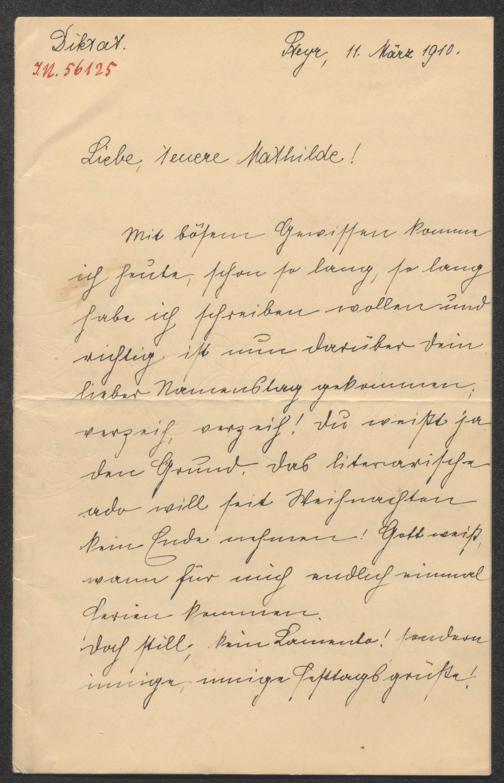 Diktat.
Steyr, 11. März 1910.
I.N. 56125
Liebe, teuere Mathilde!
Mit bösem Gewissen komme
ich heute, schon so lang, so lang
habe ich schreiben wollen und
richtig ist nun darüber Dein
lieber Namenstag gekommen;
verzeih, verzeih! Du weißt ja
den Grund. Das literarische
ado will seit Weihnachten
kein Ende nehmen! Gott weiß,
wann für mich endlich einmal
Ferien kommen.
Doch still, kein Lamento! sondern
innige, innige Festtagsgrüße!